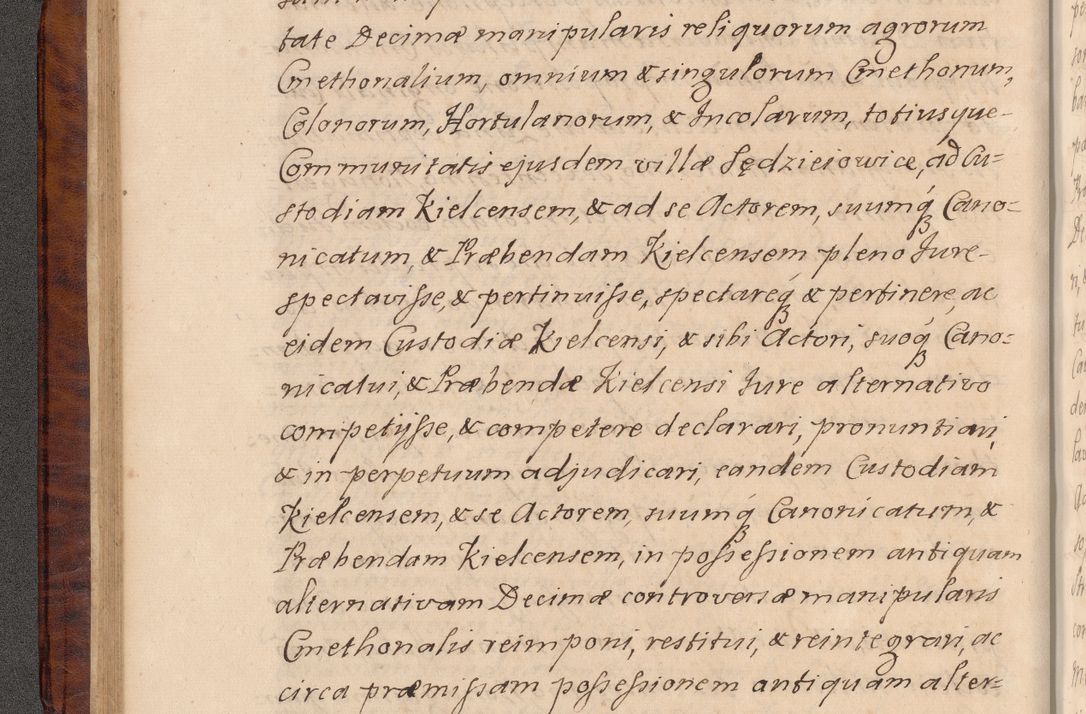 tate Decimæ manipularis reliquorum agrorum
Cmethonalium, omnium & singulorum Cmethonum,
Colonorum, Hortulanorum, & Incolarum, totiusque
Communitatis ejusdem villæ Sędzieiowice, ad Cu=
stodiam Kielcensem, & ad se Actorem, suumq́ꝫ Cano=
nicatum, & Præbendam Kielcensem pleno Jure
spectavisse, & pertinuisse, spectareq́ꝫ & pertinere, ac
eidem Custodiæ Kielcensi, & sibi Actori, suoq́ꝫ Cano=
nicatui, & Præbendæ Kielcensi Jure alternativo
competijsse, & competere declarari, pronuntiari,
& in perpetuum adjudicari, eandem Custodiam
Kielcensem, & se Actorem, suumq́ꝫ Canonicatum, &
Præbendam Kielcensem, in possessionem antiquam
alternativam Decimæ controversæ manipularis
Cmethonalis reimponi, restitui, & reintegrari, ac
circa præmissam possessionem antiquam alter=